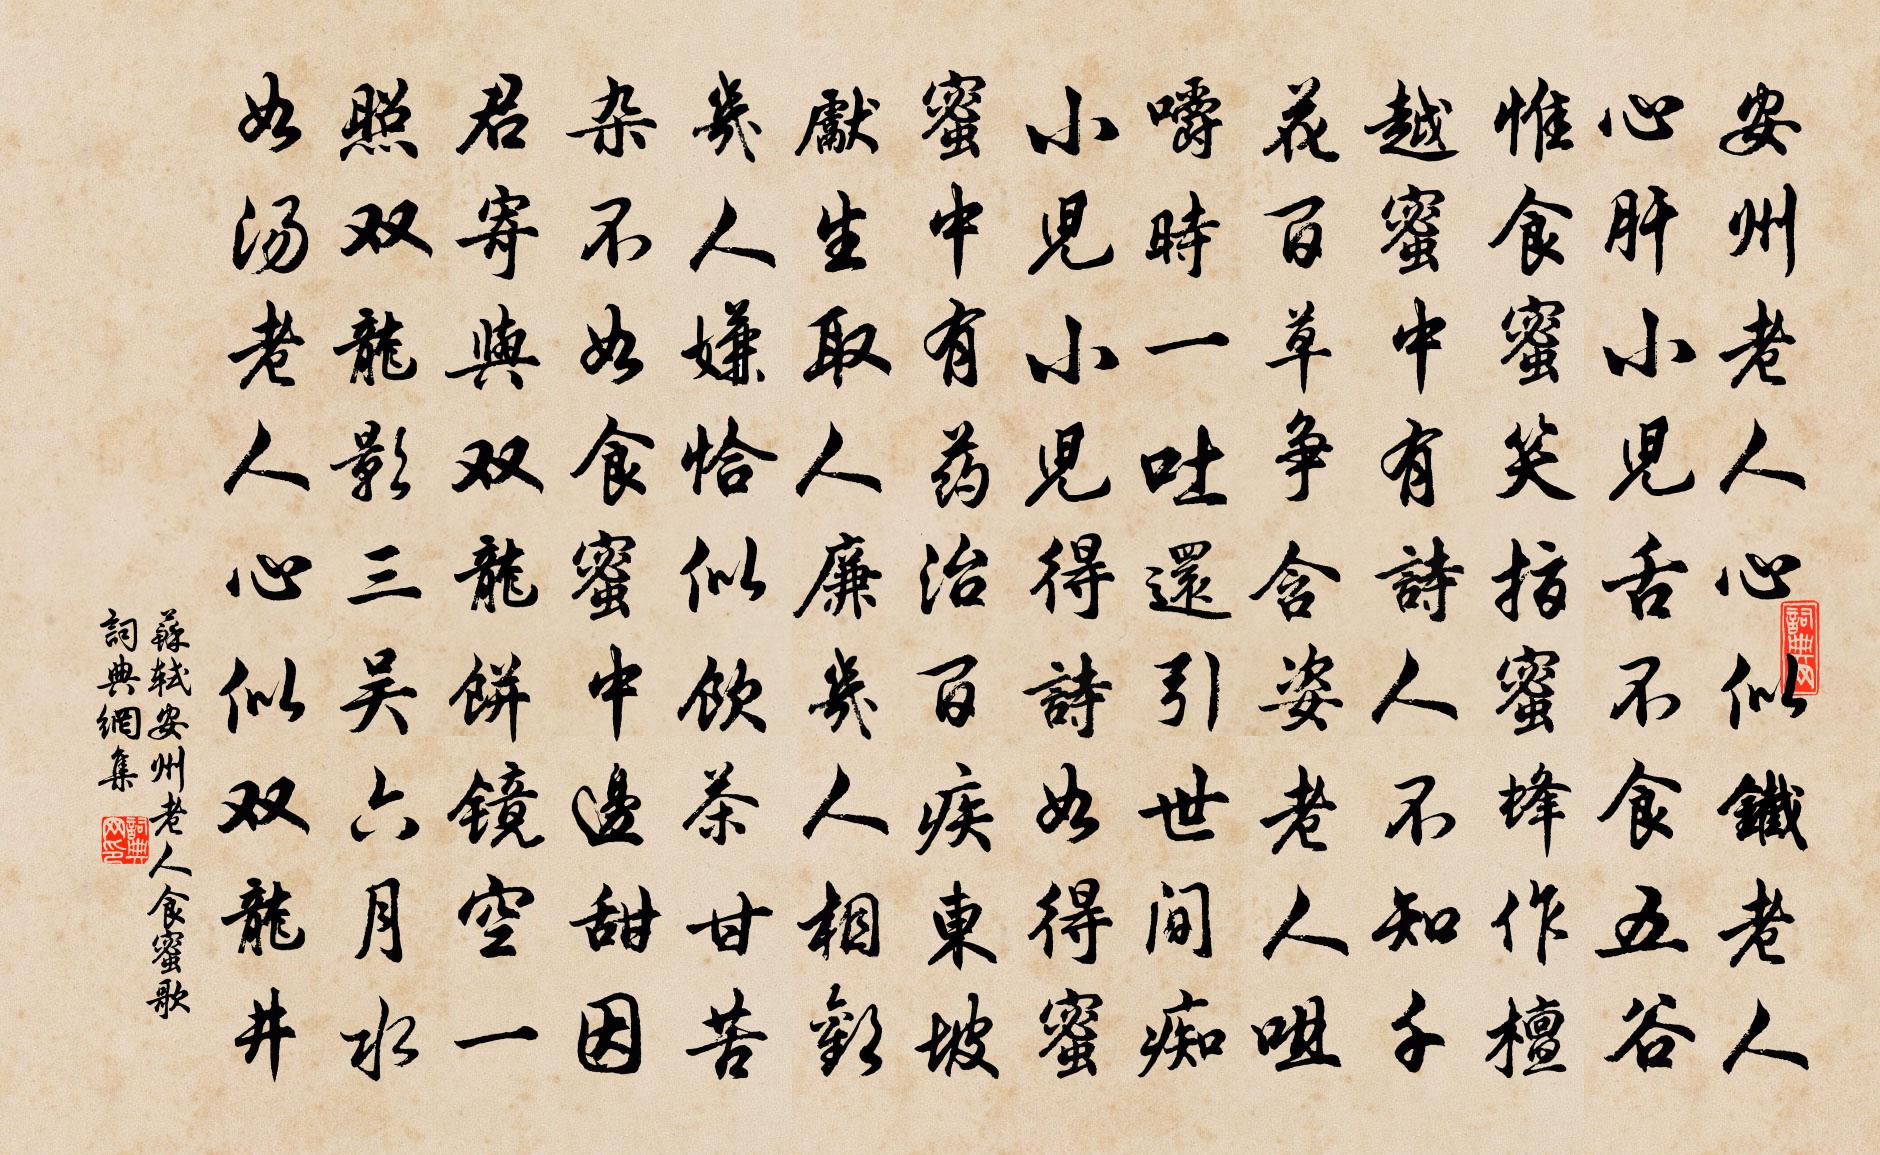 安州老人心似鐵老人
心肝小児舌不食五谷
惟食蜜蜜笑指蜜蜂作檀
越蜜中有詩人不知千
花百草争含姿老人咀
嚼時一吐還引世间痴
小児小児得詩如得蜜
蜜中有药治百疾東坡
獻生取人廉幾人相歡
幾人嫌恰似飲茶甘苦
杂不如食蜜中邊甜因
君寄與双龍餅镜空一
照双龍影三吴六月水
如汤老人心似双龍井
蘇轼安州老人食蜜歌
詞典網集
詞典网
詞典网印